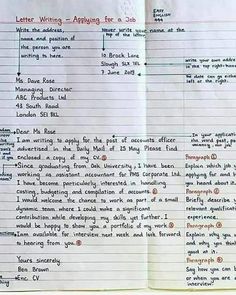 EASY
ENGLISH
Letter Writing - Applying for a Job
Write the address,
name and position of
the person you are
writing to here.
Never write your name at the
top of the letter.
10 Brock Lane
Slough SL3
7 June 2019
Write your own address
on the top right
The date can go either
left or the right.
Mr Dave Rose
Managing Director
ABC Products Ltd
48 South
London SE1
Dear Ms Rose
I am writing to apply for the post of accounts officer
advertised in the Daily Mail of 15 May. Please find
enclosed a copy of my CV.
Since graduating from Oak University, I have been
working as assistant accountant for PMS Corporate Ltd.
I have become particularly interested in handling
costing, budgeting and compilation of accounts.
I would welcome the chance to work as part of a small
dynamic team where I could make a significant
contribution while developing my skills yet further. I
would be happy to show you a portfolio of my work.
I am available for interview next week and look forward
to hearing from you.
Yours sincerely
Ben Brown
Enc. CV
In your application
the
post,
Paragraph
Explain why you
applying for and
you heard about it.
Paragraph
Briefly describe
relevant
experience.
Paragraph
Explain why you
and why you think
good at it.
Paragraph
Say how you can be
or when you